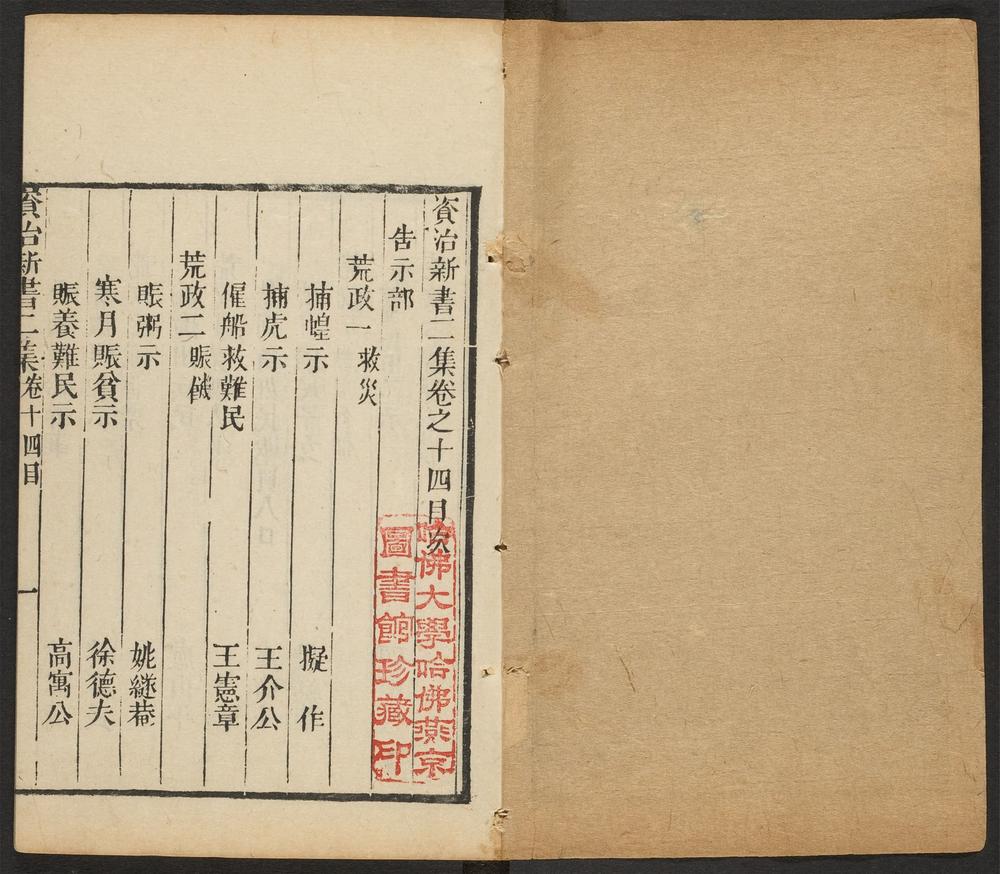 資治新書二集卷之十四目次
告示部
荒政一 救災
捕蝗示 擬作
捕虎示 王介公
僱船救難民 王憲章
荒政二 賑饑
賑粥示 姚繼菴
寒月賑貧示 徐德夫
賑養難民示 高寓公
資治新書二集 卷十四目 一
哈佛大學哈佛燕京
圖書館珍藏印